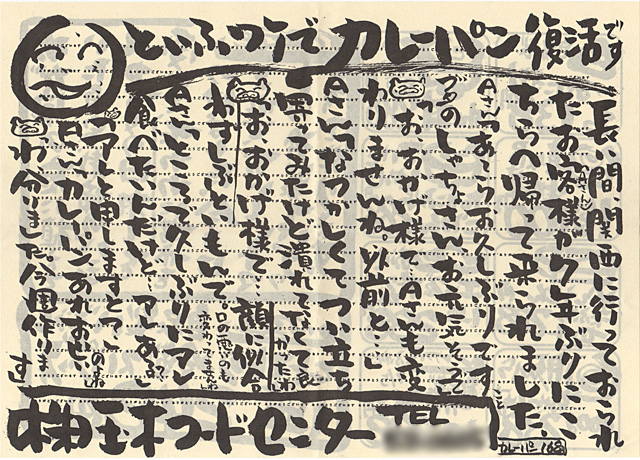 といふワケで カレーパン 復活です
長い間、関西に行っておられ
たお客様が7年ぶりにこ
ちらへ帰って来られました。
Aさん「あ〜らお久しぶりですこと
ブタのしゃちょさんお元気そうって」
「おおかげ様で…Aさんも変
わりませんね。以前と」
Aさん「なつかしくてつい立ち
寄ってみたけど潰れてなくて良かったわ」
「おおかげ様で…顔に似合
わずしぶといもんで。口の悪いのも変わってませんね」
Aさん「ところで久しぶりにアレ
食べたいんだけど…アレある？」
「アレと申しますと？」
Aさん「カレーパン、あれおいしいのよね」
「わ分りました。今週作ります」
㈱玉木フードセンター TEL
カレーパン 168